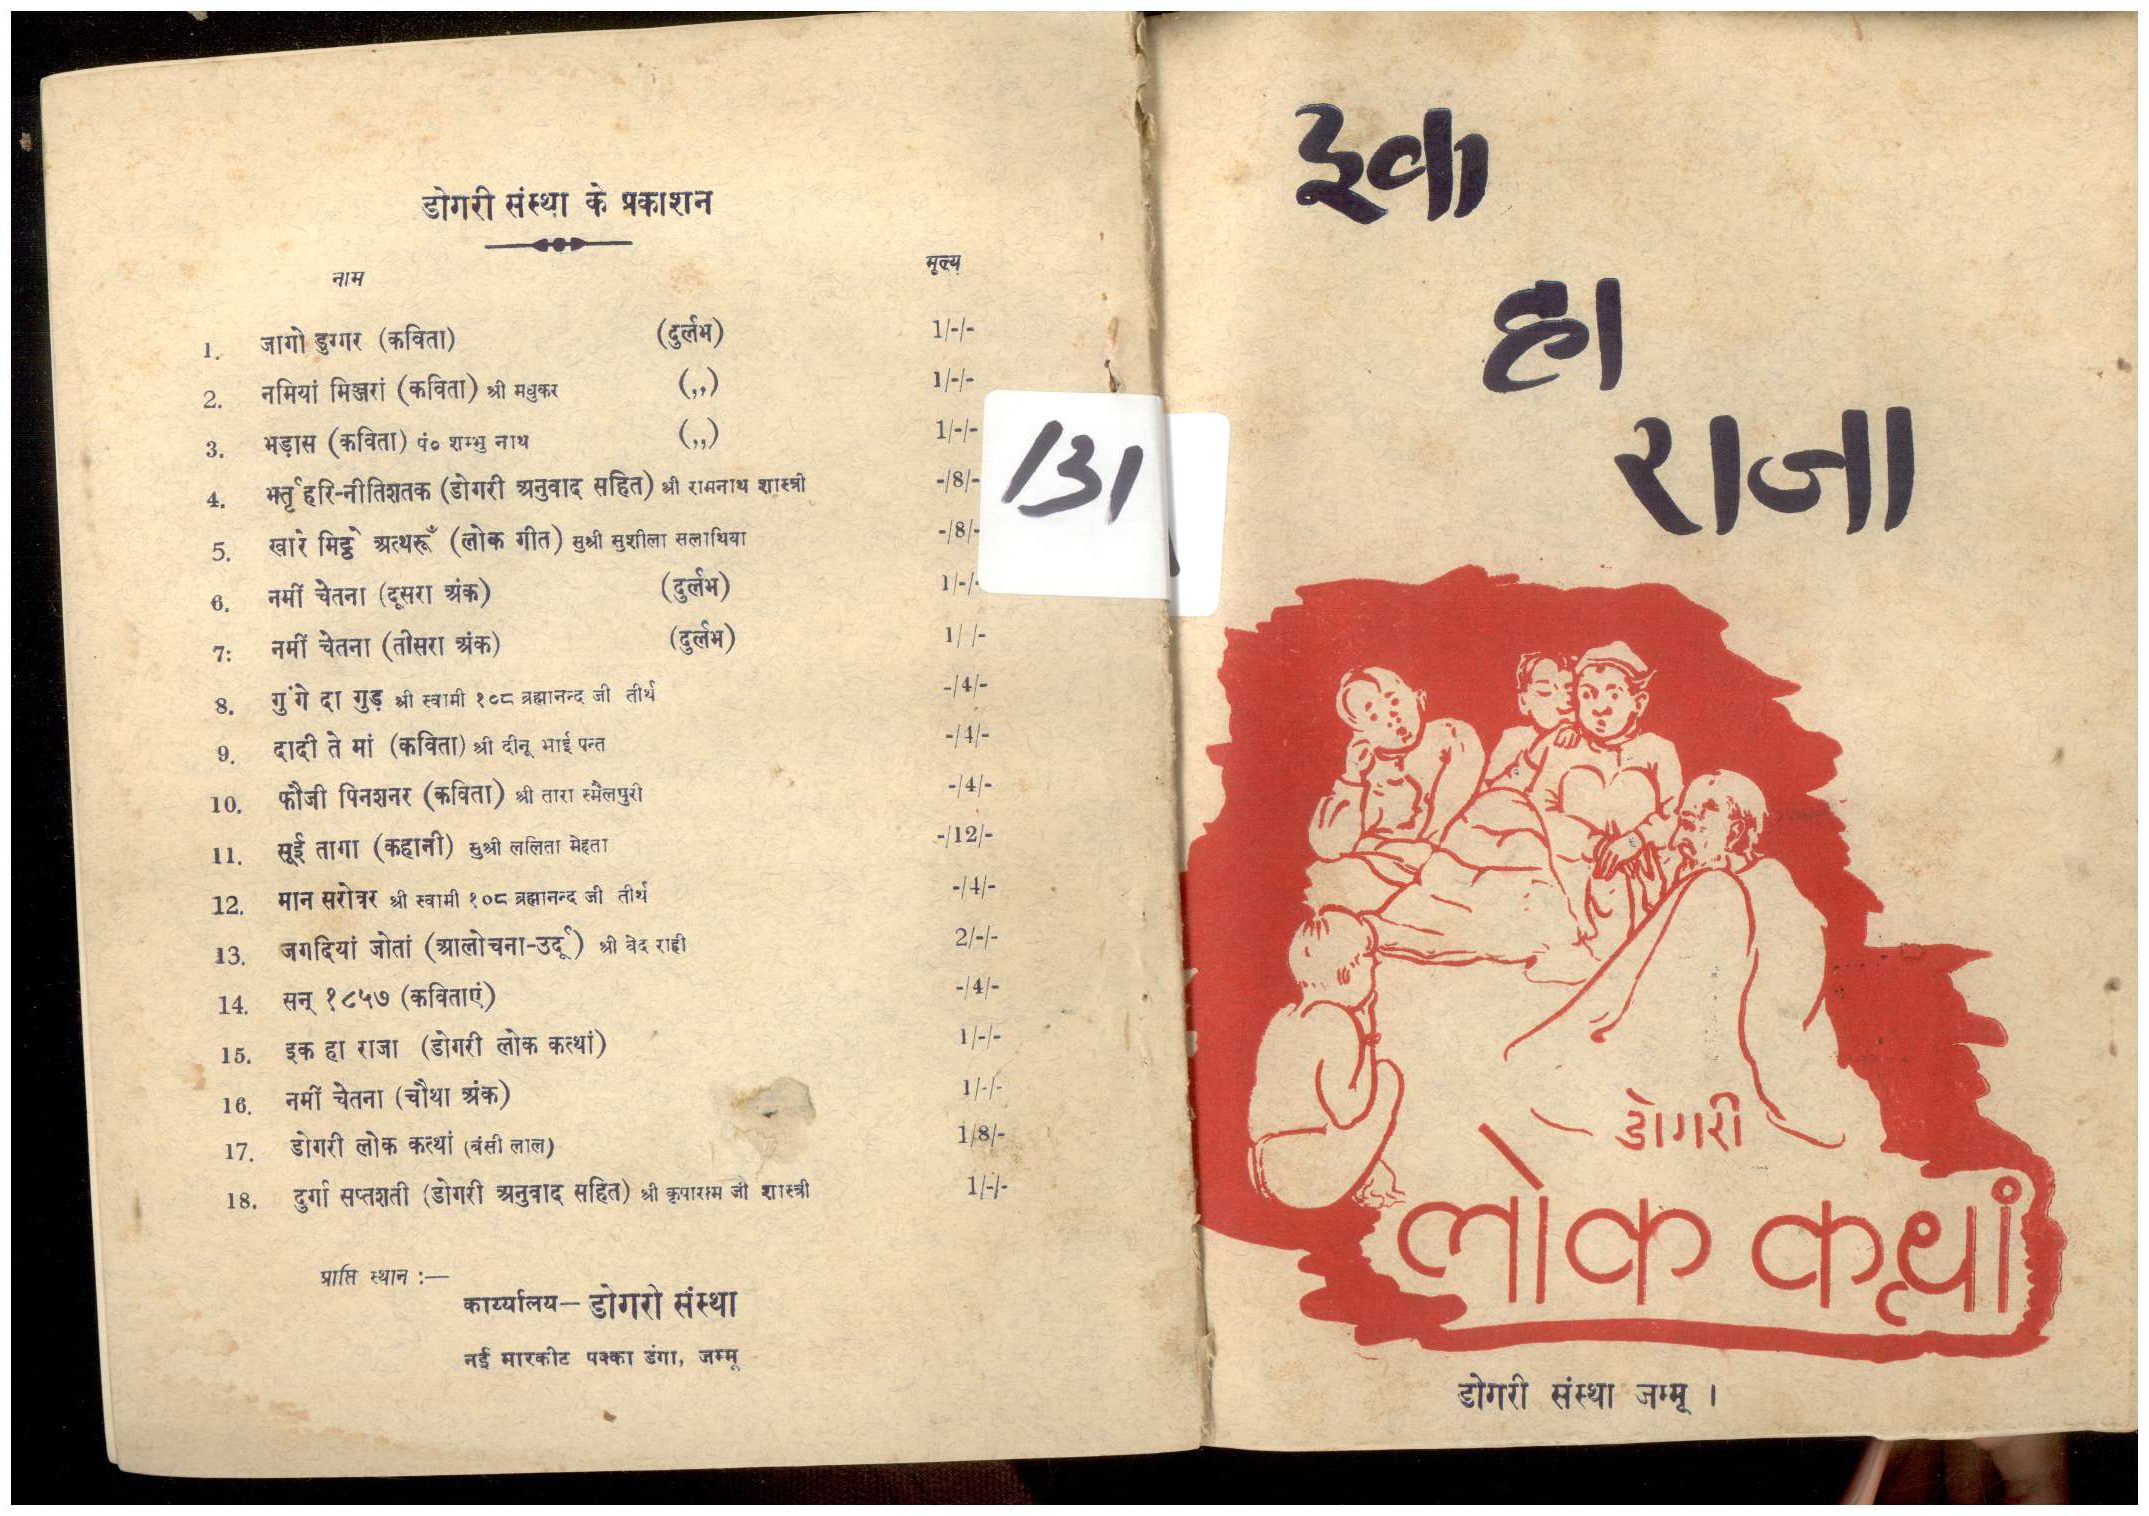 डोगरी संस्था के प्रकाशन
नाम मूल्य
1. जागो डुग्गर (कविता) (दुर्लभ) 1/-/-
2. नमियां मिञ्जरां (कविता) श्री मधुकर (,,) 1/-/-
3. भड़ास (कविता) पं० शम्भु नाथ (,,) 1/-/-
4. भर्तृहरि-नीतिशतक (डोगरी अनुवाद सहित) श्री रामनाथ शास्त्री -/8/-
5. खारे मिट्ठे अत्थरूँ (लोक गीत) सुश्री सुशीला सलाथिया -/8/-
6. नमीं चेतना (दूसरा अंक) (दुर्लभ) 1/-/-
7: नमीं चेतना (तीसरा अंक) (दुर्लभ) 1/ /-
8. गुंगे दा गुड़ श्री स्वामी १०८ ब्रह्मानन्द जी तीर्थ -/4/-
9. दादी ते मां (कविता) श्री दीनू भाई पन्त -/4/-
10. फौजी पिनशनर (कविता) श्री तारा स्मैलपुरी -/4/-
11. सूई तागा (कहानी) सुश्री ललिता मेहता -/12/-
12. मान सरोवर श्री स्वामी १०८ ब्रह्मानन्द जी तीर्थ -/4/-
13. जगदियां जोतां (आलोचना-उर्दू) श्री वेद राही 2/-/-
14. सन् १८५७ (कविताएं) -/4/-
15. इक हा राजा (डोगरी लोक कत्थां) 1/-/-
16. नमीं चेतना (चौथा अंक) 1/-/-
17. डोगरी लोक कत्थां (बंसी लाल) 1/8/-
18. दुर्गा सप्तशती (डोगरी अनुवाद सहित) श्री कृपाराम जी शास्त्री 1/-/-
प्राप्ति स्थान :—
कार्य्यालय— डोगरी संस्था
नई मारकीट पक्का डंगा, जम्मू
131
इक
हा
राजा
डोगरी
लोक कत्थां
डोगरी संस्था जम्मू ।